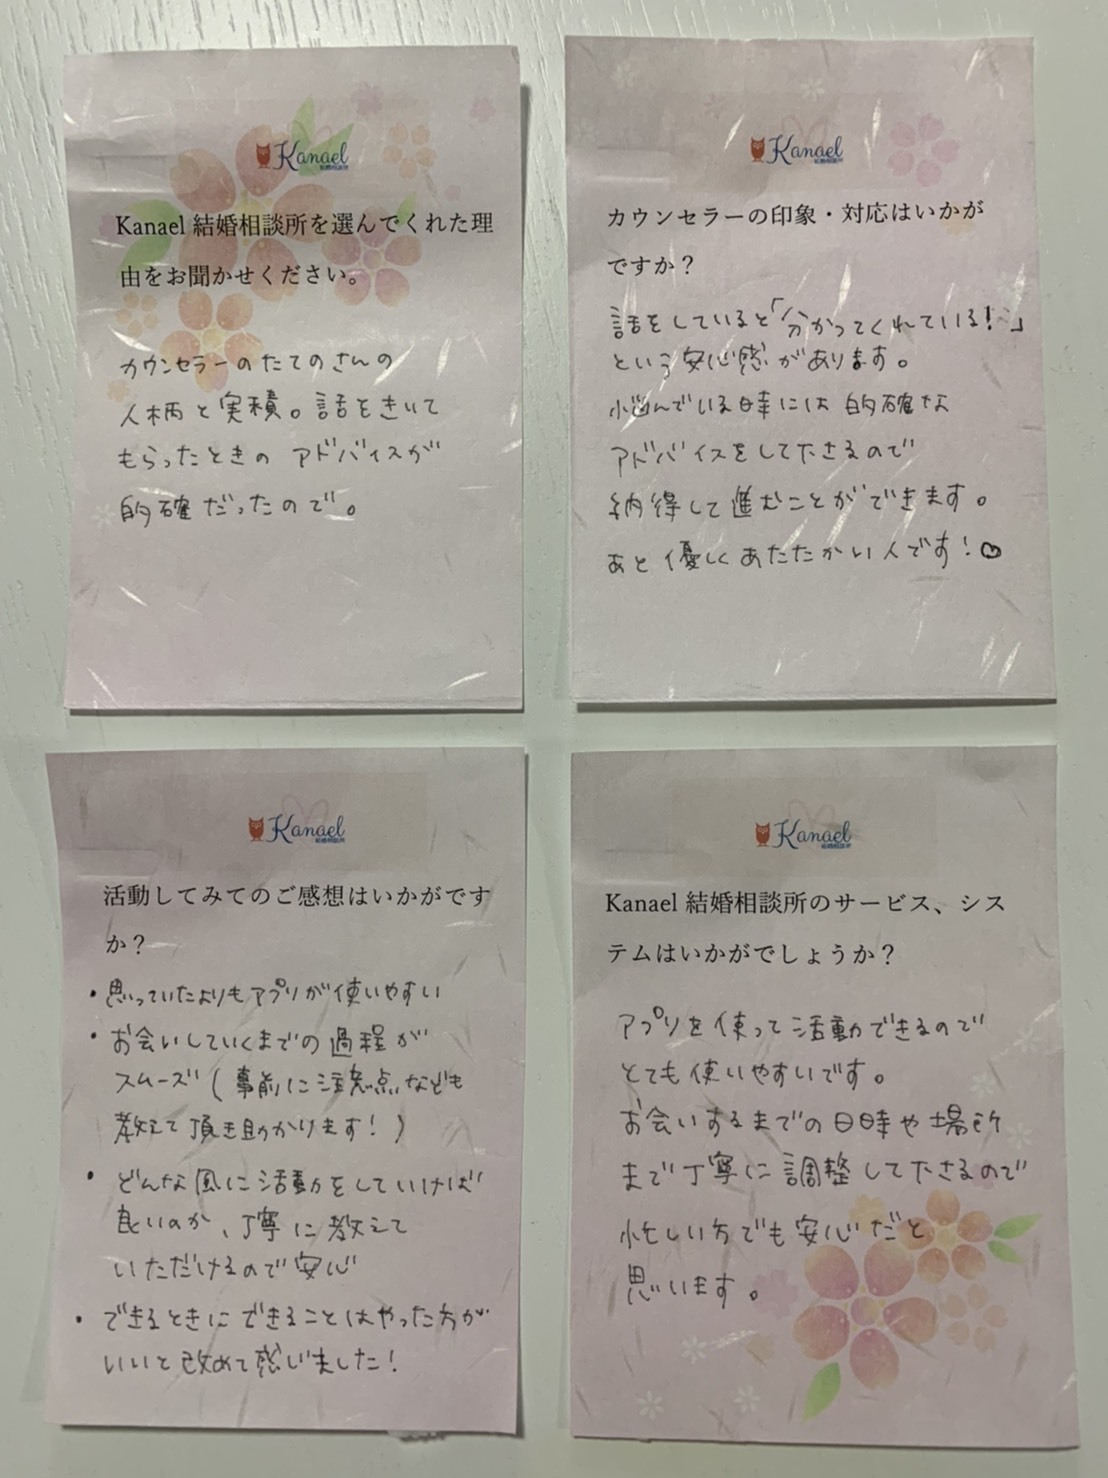 Kanael
結婚相談所
Kanael 結婚相談所を選んでくれた理
由をお聞かせください。
カウンセラーのたてのさんの
人柄と実積。話をきいて
もらったときの アドバイスが
的確だったので。
Kanael
結婚相談所
カウンセラーの印象・対応はいかが
ですか？
話をしていると「分かってくれている!」
という安心感があります。
悩んでいる時には 的確な
アドバイスをして下さるので
納得して進むことができます。
あと 優しく あたたかい人です!♡
Kanael
結婚相談所
活動してみてのご感想はいかがです
か？
・思っていたよりもアプリが使いやすい
・お会いしていくまでの過程が
スムーズ(事前に注意点なども
教えて頂き助かります!)
・どんな風に活動をしていけば
良いのか、丁寧に教えて
いただけるので安心
・できるときにできることはやった方が
いいと改めて感じました!
Kanael
結婚相談所
Kanael 結婚相談所のサービス、シス
テムはいかがでしょうか？
アプリを使って活動できるので
とても使いやすいです。
お会いするまでの日時や場所
まで丁寧に調整して下さるので
忙しい方でも安心だと
思います。